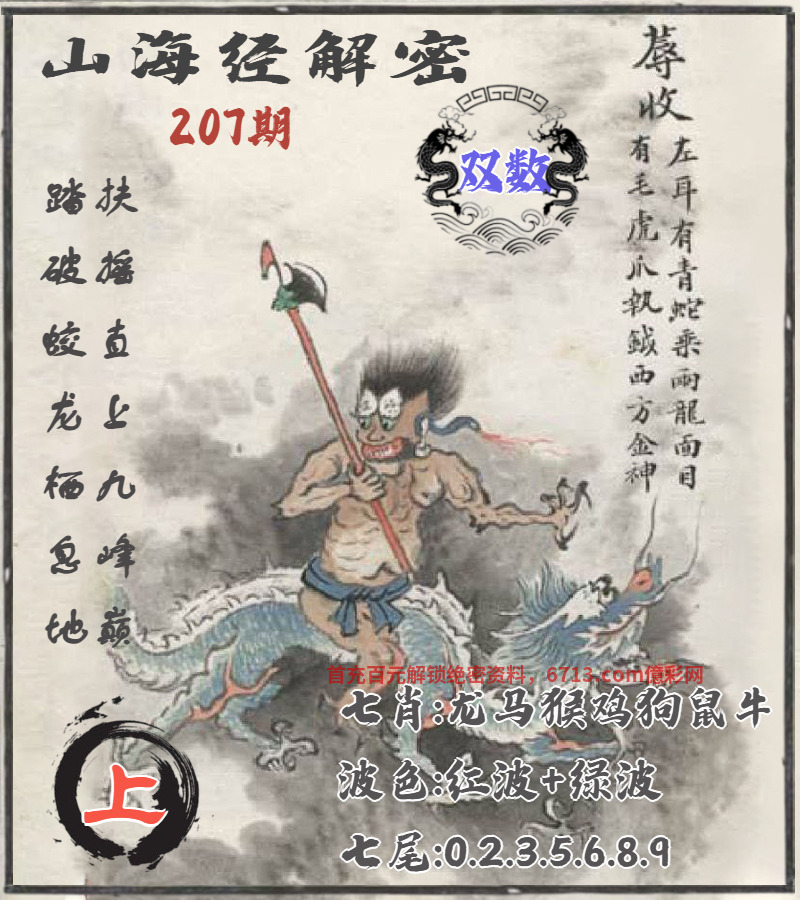 山海经解密
207期
双数
蓐收
左耳有青蛇乘兩龍面目
有毛虎爪執鉞西方金神
扶摇直上九峰巅
踏破蛟龙栖息地
首充百元解锁绝密资料，6713.com億彩网
七肖:龙马猴鸡狗鼠牛
上
波色:红波+绿波
七尾:0.2.3.5.6.8.9